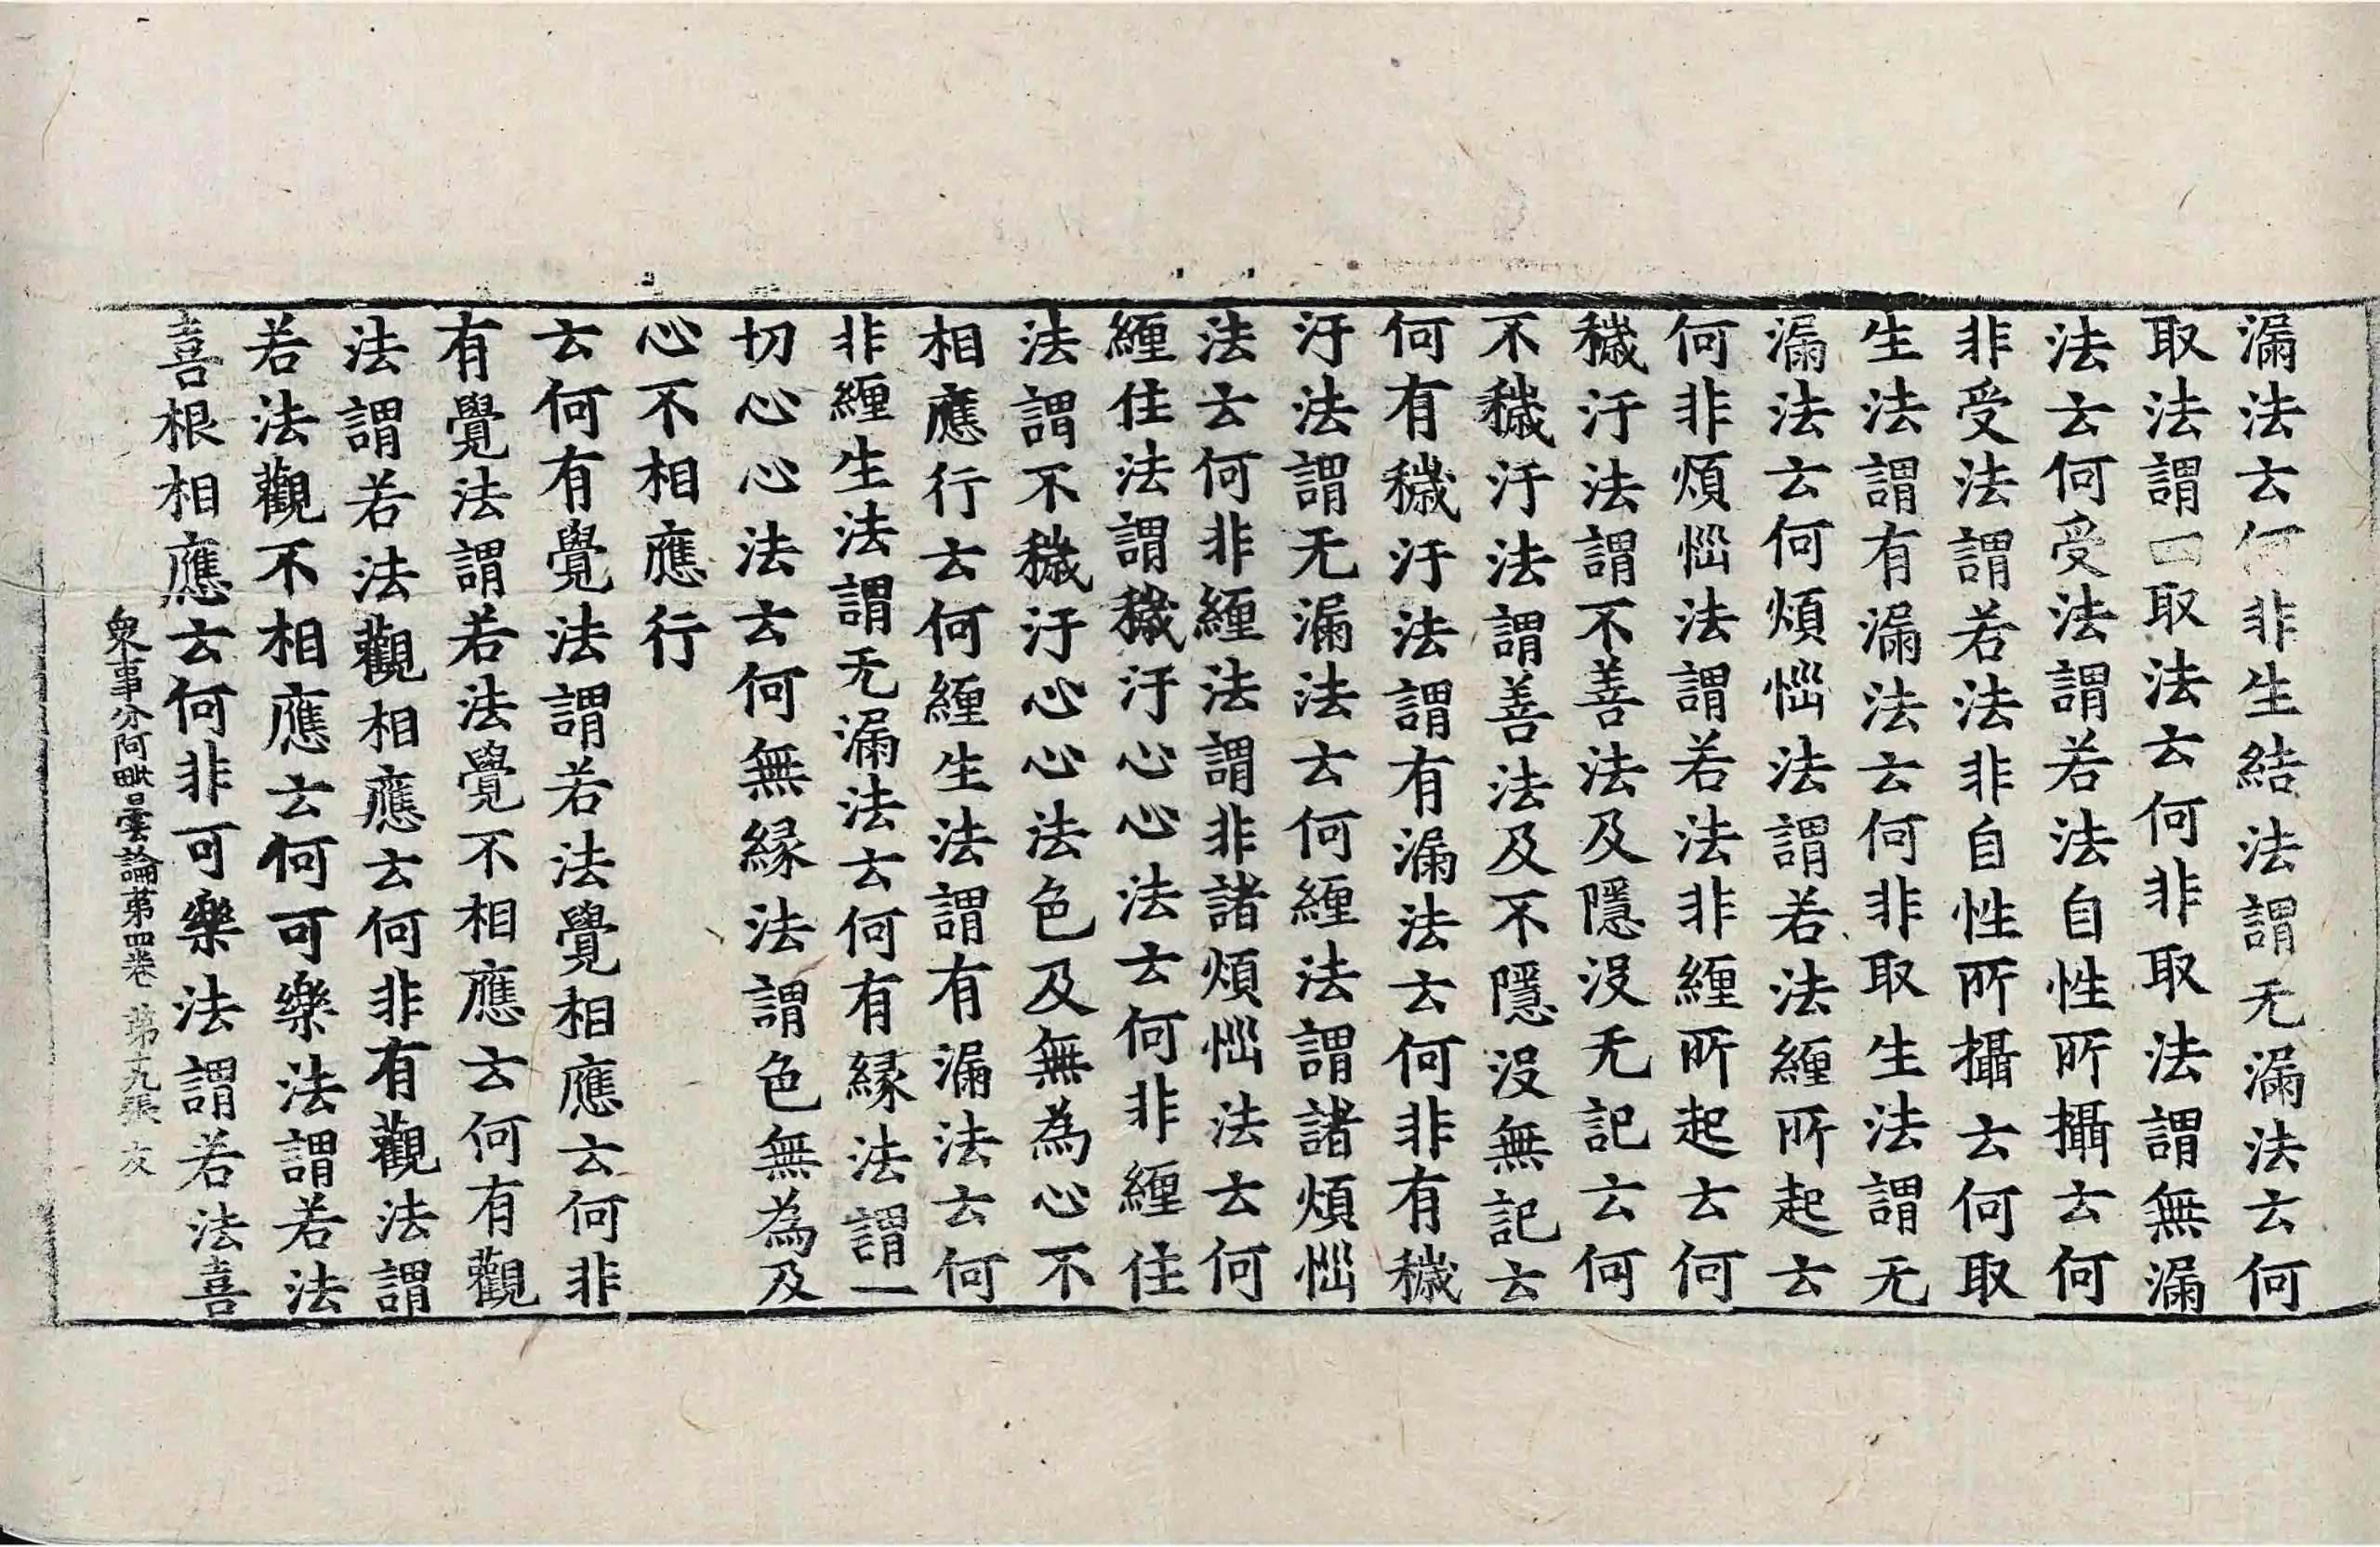 漏法去何非生結法謂无漏法去何
取法謂一取法去何非取法謂無漏
法去何受法謂若法自性所攝去何
非受法謂若法非自性所攝去何取
生法謂有漏法去何非取生法謂无
漏法去何煩惱法謂若法纒所起去
何非煩惱法謂若法非纒所起去何
穢汙法謂不善法及隱没无記去何
不穢汙法謂善法及不隱没無記去
何有穢汙法謂有漏法去何非有穢
汙法謂无漏法去何纒法謂諸煩惱
法去何非纒法謂非諸煩惱法去何
纒住法謂穢汙心心法去何非纒住
法謂不穢汙心心法色及無為心不
相應行去何纒生法謂有漏法去何
非纒生法謂无漏法去何有縁法謂一
切心心法去何無縁法謂色無為及
心不相應行
去何有覺法謂若法覺相應去何非
有覺法謂若法覺不相應去何有觀
法謂若法觀相應去何非有觀法謂
若法觀不相應去何可樂法謂若法
喜根相應去何非可樂法謂若法喜
衆事分阿毗曇論苐四卷 苐十九張 友